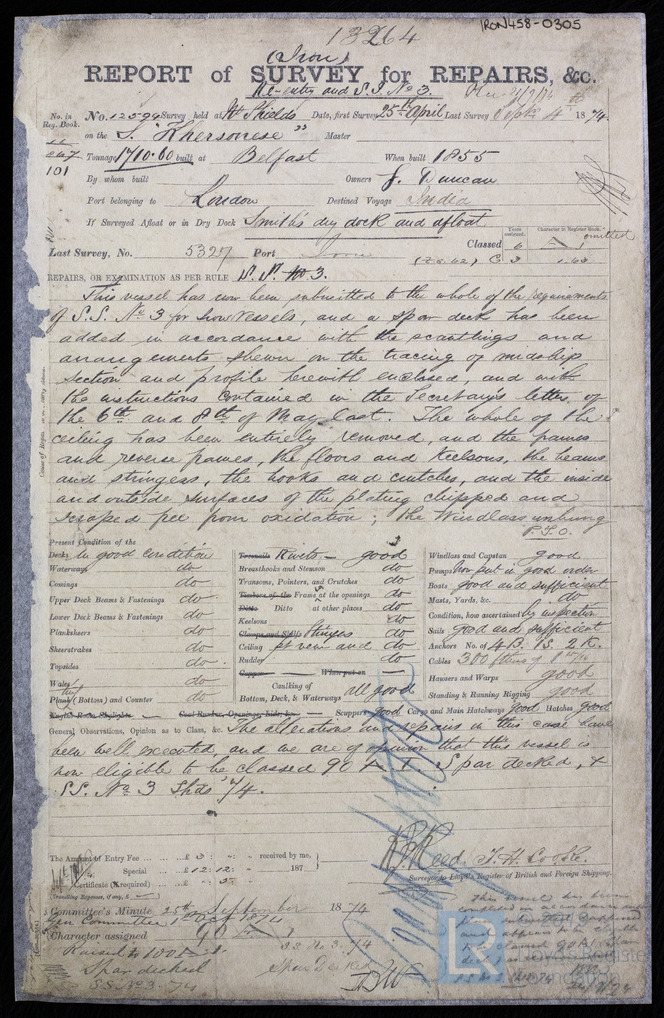 13264
IRON458-0305
(Iron)
REPORT of SURVEY for REPAIRS, &c.
Re-entry and S.S. No 3.
No. in Reg. Book.
No. 12594 Survey held at N. Shields Date, first Survey 25th April Last Survey 1874
on the S. "Khersonese" Master
Tonnage 1710.60 built at Belfast When built 1855
101
By whom built Owners J. Duncan
Port belonging to London Destined Voyage India
If Surveyed Afloat or in Dry Dock Smith's dry dock and afloat
Years assigned. Character in Register Book.
omitted
Last Survey, No. 5327 Port Classed 6 A 1
REPAIRS, OR EXAMINATION AS PER RULE S.S. No 3.
This vessel has now been submitted to the whole of the requirements
of S.S. No 3 for Iron Vessels, and a spar deck has been
added in accordance with the scantlings and
arrangements shewn on the tracing of midship
section and profile herewith enclosed, and with
the instructions contained in the Secretary's letters of
the 6th and 8th of May last. The whole of the
ceiling has been entirely removed, and the frames
and reverse frames, the floors and keelsons, the beams
and stringers, the hooks and crutches, and the inside
and outside surfaces of the plating chipped and
scraped free from oxidation; the Windlass unhung
P.T.O.
Present Condition of the
Decks In good condition
Waterways do
Comings do
Upper Deck Beams & Fastenings do
Lower Deck Beams & Fastenings do
Planksheers do
Sheerstrakes do
Topsides do
Wales do
Plank (Bottom) and Counter do
Treenails Rivets good
Breasthooks and Stemson do
Transoms, Pointers, and Crutches do
Timbers of the Frame at the openings do
Ditto Ditto at other places do
Keelsons do
Clamps and Shelfs Stringers do
Ceiling pt new and do
Rudder do
Copper When put on
Caulking of Bottom, Deck, & Waterways all good
Windlass and Capstan good
Pumps now put in good order
Boats good and sufficient
Masts, Yards, &c. do
Condition, how ascertained by inspection
Sails good and sufficient
Anchors No. of 4 B. 1 S. 2 K.
Cables 300 fthms of
Hausers and Warps good
Standing & Running Rigging good
Scuppers good Cargo and Main Hatchways good Hatches good
General Observations, Opinion as to Class, &c. The alterations and repairs in this case have
been well executed, and we are of opinion that this vessel is
now eligible to be classed 90 A 1. Spar decked, &
S.S. No 3 Shds /74.
The Amount of Entry Fee £ 3 received by me,
Special £ 12.12. 187
Certificate (if required) £
Travelling Expenses, if any, £
T. H. Cooke.
Surveyor to Lloyd's Register of British and Foreign Shipping.
Committee's Minute 25th September 1874
Character assigned 90 A 1
Raised to 100 A 1
Spar decked
SS No 3 - 74
SS No 3. 74
Spar Decked
LR
Lloyd's Register Foundation